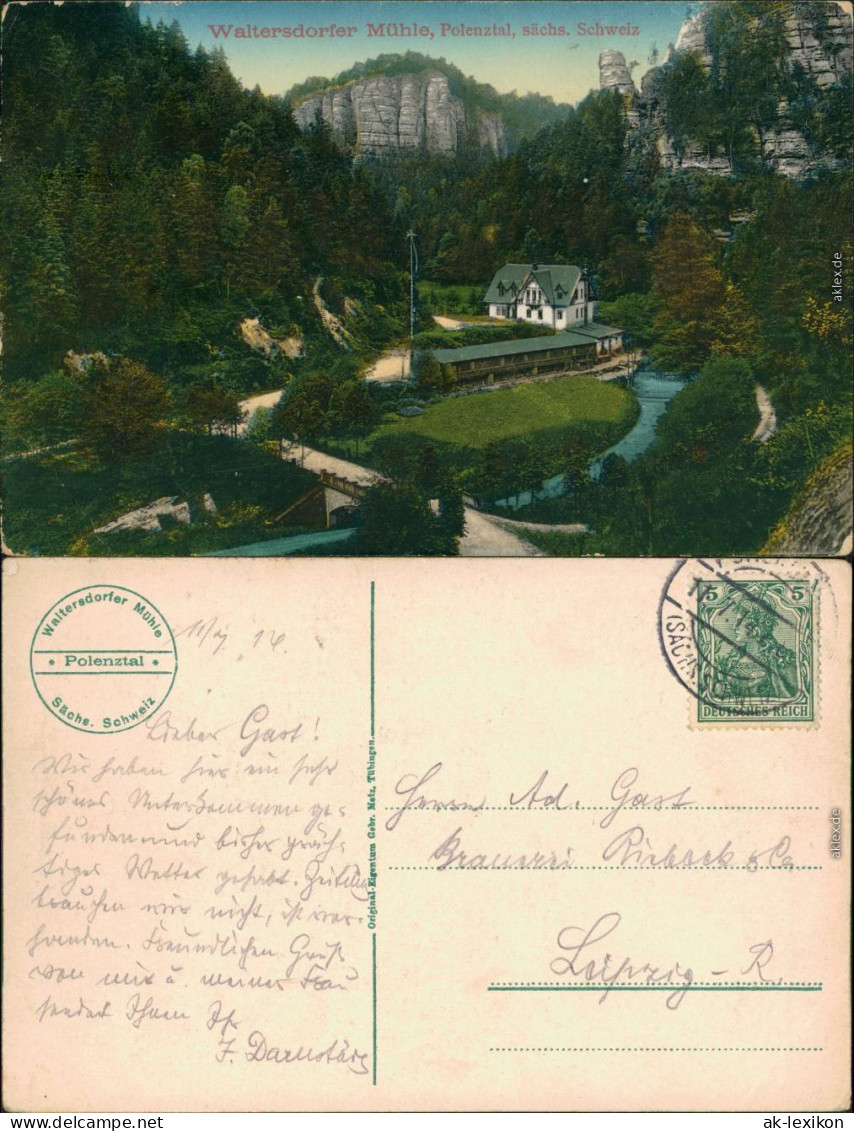 Waltersdorfer Mühle, Polenztal, sächs. Schweiz
aklex.de
Waltersdorfer Mühle
• Polenztal •
Sächs. Schweiz
Lieber Gast!
Wir haben hier ein sehr
schönes Unterkommen ge-
funden und bisher präch-
tiges Wetter gehabt. Zeitung
brauchen wir nicht, ist vor-
handen. Freundlichen Gruß
von mir u. meiner Frau
sendet Ihnen Ihr
Original-Eigentum Gebr. Metz, Tübingen.
5 5
DEUTSCHES REICH
(SÄCHS.
Herrn Ad. Gast
Brauerei Riebeck & Co.
Leipzig-R.
aklex.de
www.delcampe.net
ak-lexikon